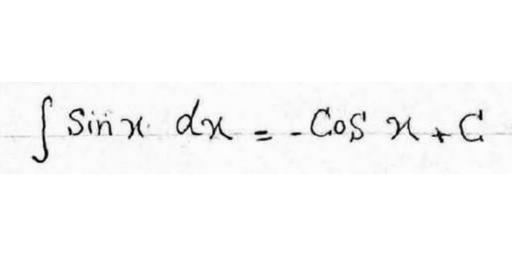 ∫ Sin x dx = - Cos x + C